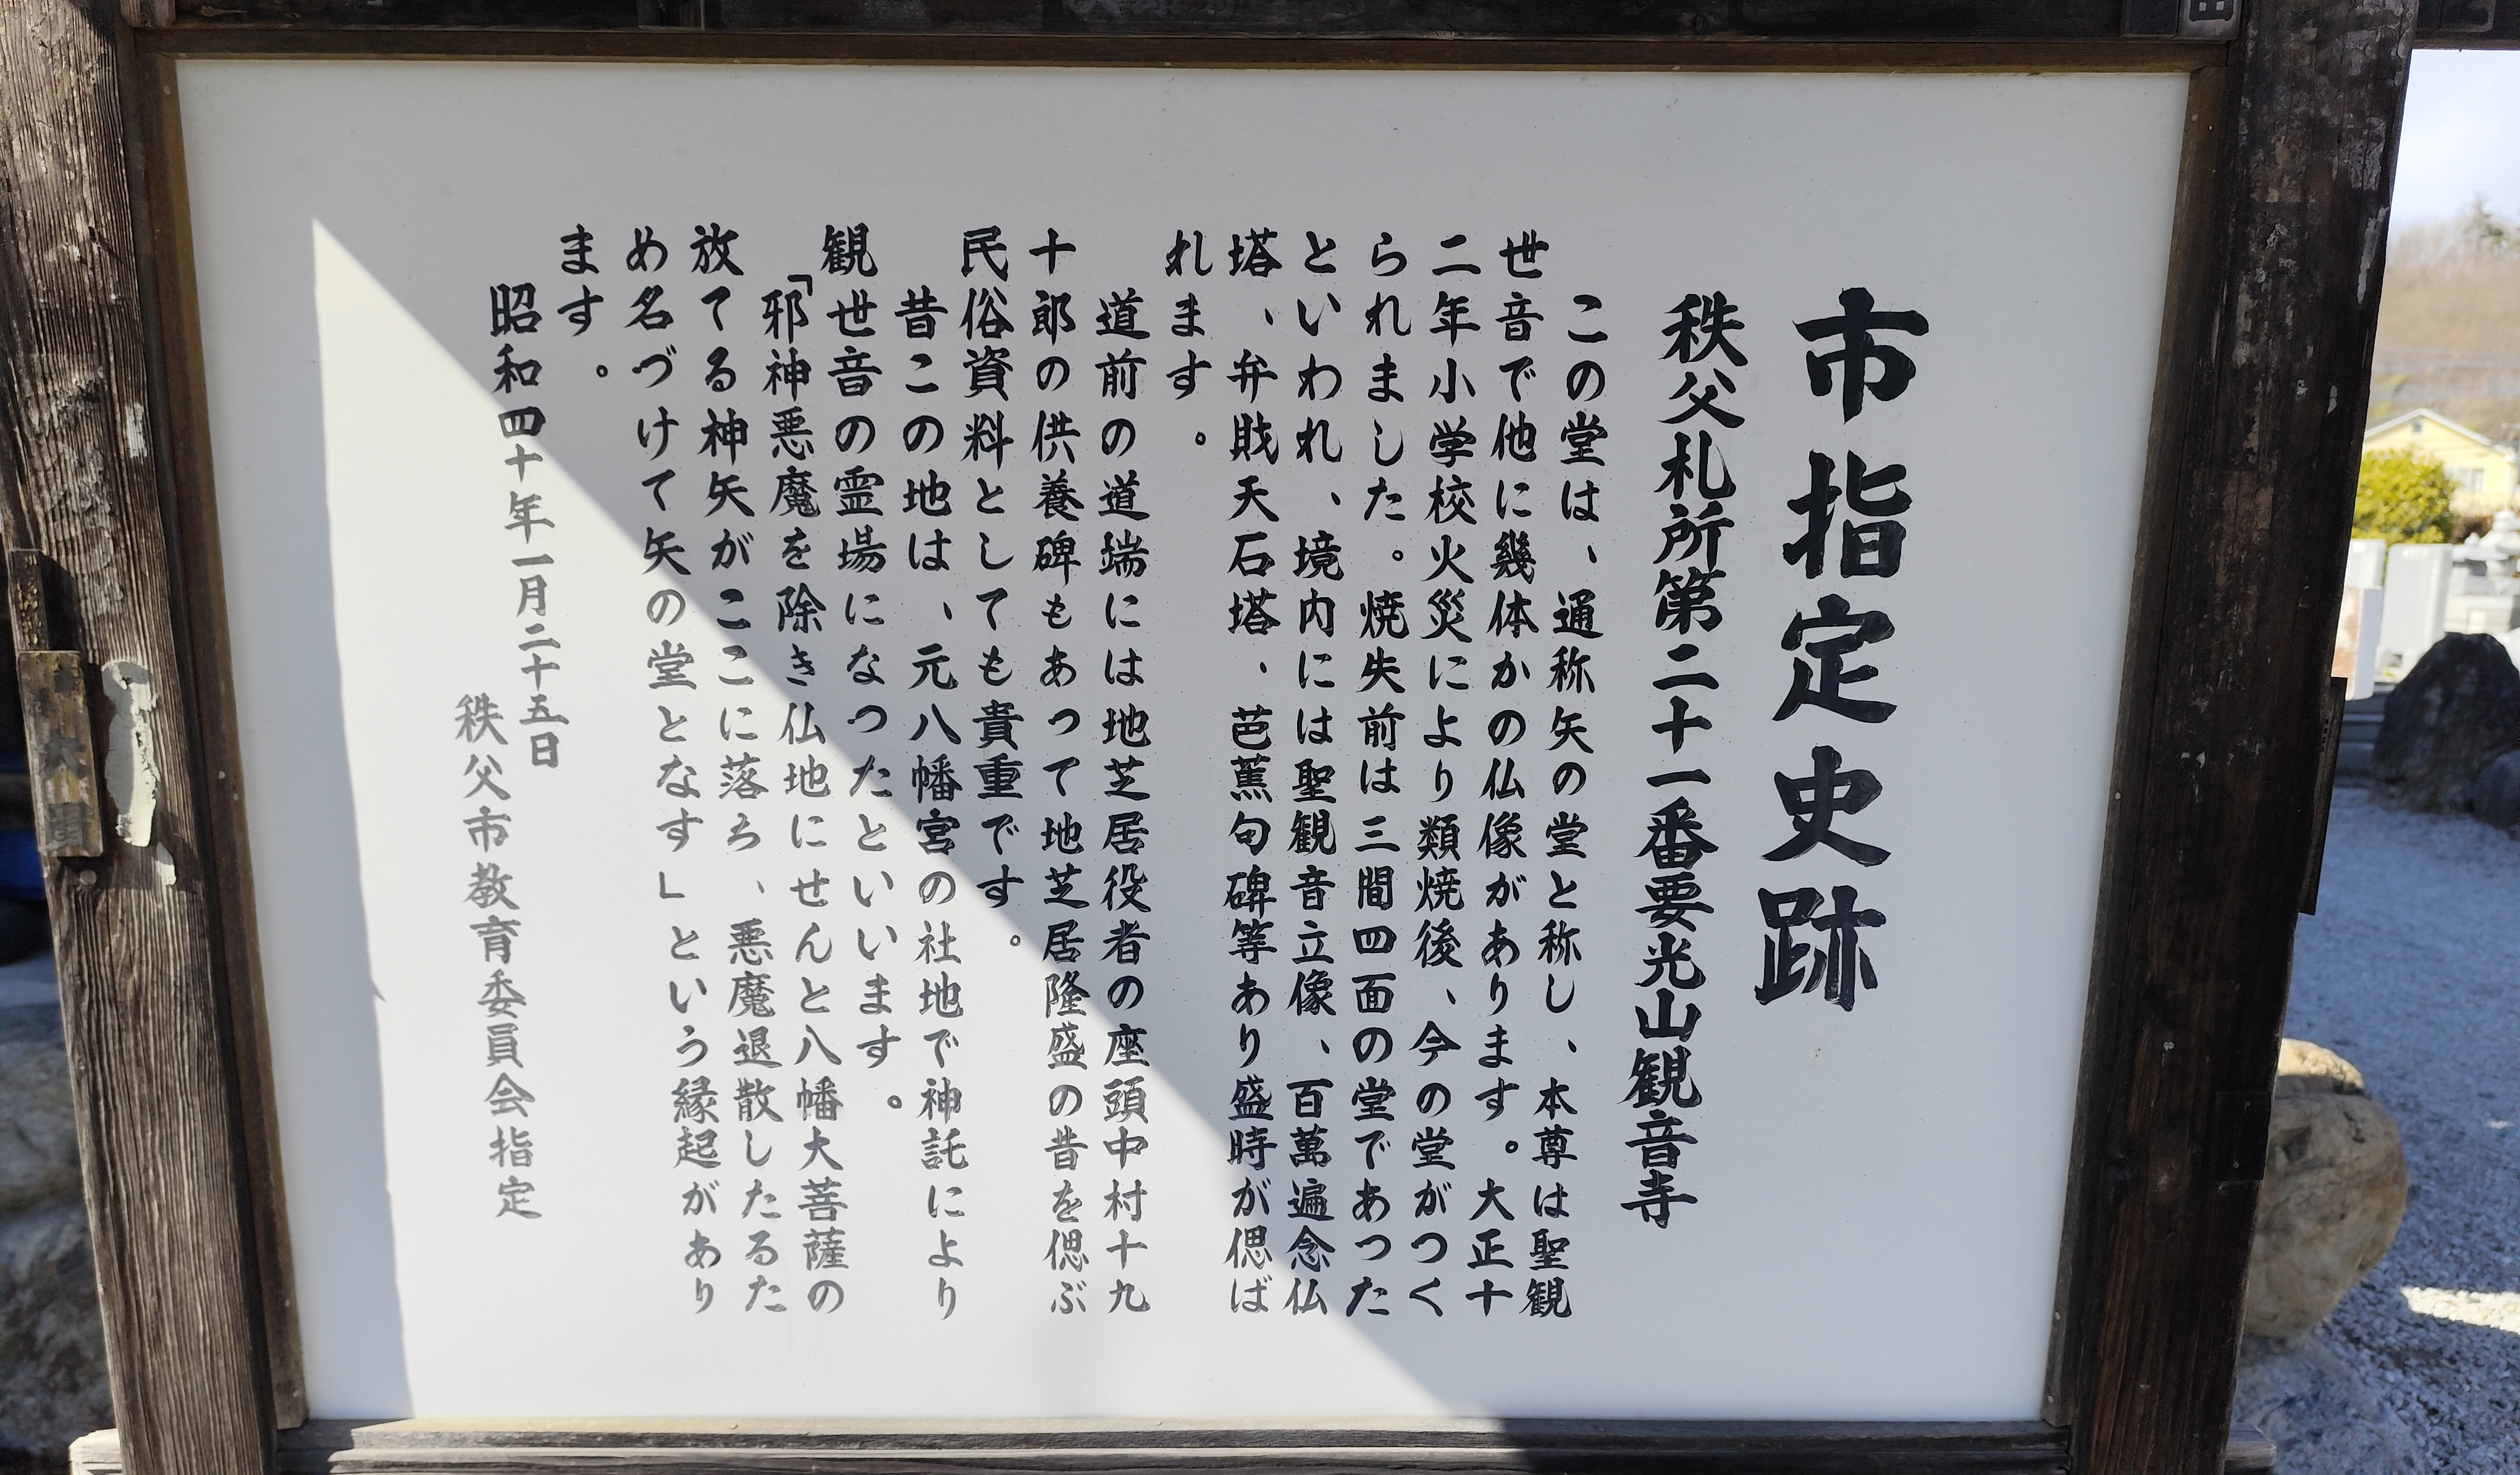 市指定史跡
秩父札所第二十一番要光山観音寺
この堂は、通称矢の堂と称し、本尊は聖観
世音で他に幾体かの仏像があります。大正十
二年小学校火災により類焼後、今の堂がつく
られました。焼失前は三間四面の堂であった
といわれ、境内には聖観音立像、百萬遍念仏
塔、弁戝天石塔、芭蕉句碑等あり盛時が偲ば
れます。
道前の道端には地芝居役者の座頭中村十九
十郎の供養碑もあって地芝居隆盛の昔を偲ぶ
民俗資料としても貴重です。
昔この地は、元八幡宮の社地で神託により
観世音の霊場になったといいます。
「邪神悪魔を除き仏地にせんと八幡大菩薩の
放てる神矢がここに落ろ、悪魔退散したるた
め名づけて矢の堂となす」という縁起があり
ます。
昭和四十年一月二十五日
秩父市教育委員会指定